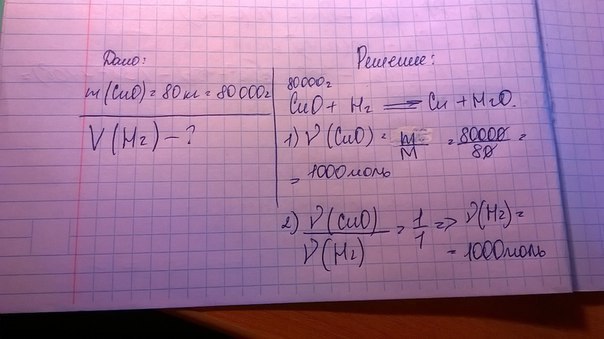 Дано:
m(CuO) = 80 кг = 80 000г
V(H₂) - ?
Решение:
80000г
CuO + H₂ = Cu + H₂O.
1) ν(CuO) = m/M = 80000/80 =
= 1000 моль
2) ν(CuO)/ν(H₂) = 1/1 => ν(H₂) =
= 1000 моль